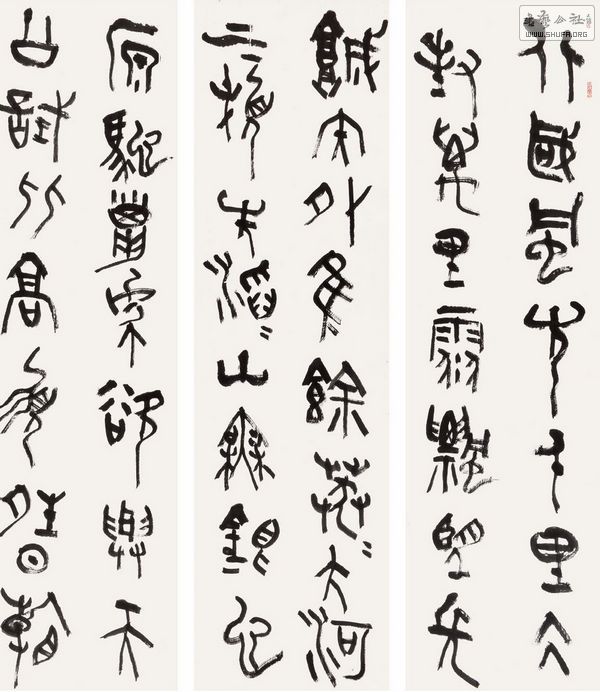 北國風光千里冰
封萬里雪飄望長
城内外隹餘莽〻大河
上下頓失滔〻山舞銀它
原馳蠟象欲與天
公試比高須晴日看
WWW.SHUFA.ORG